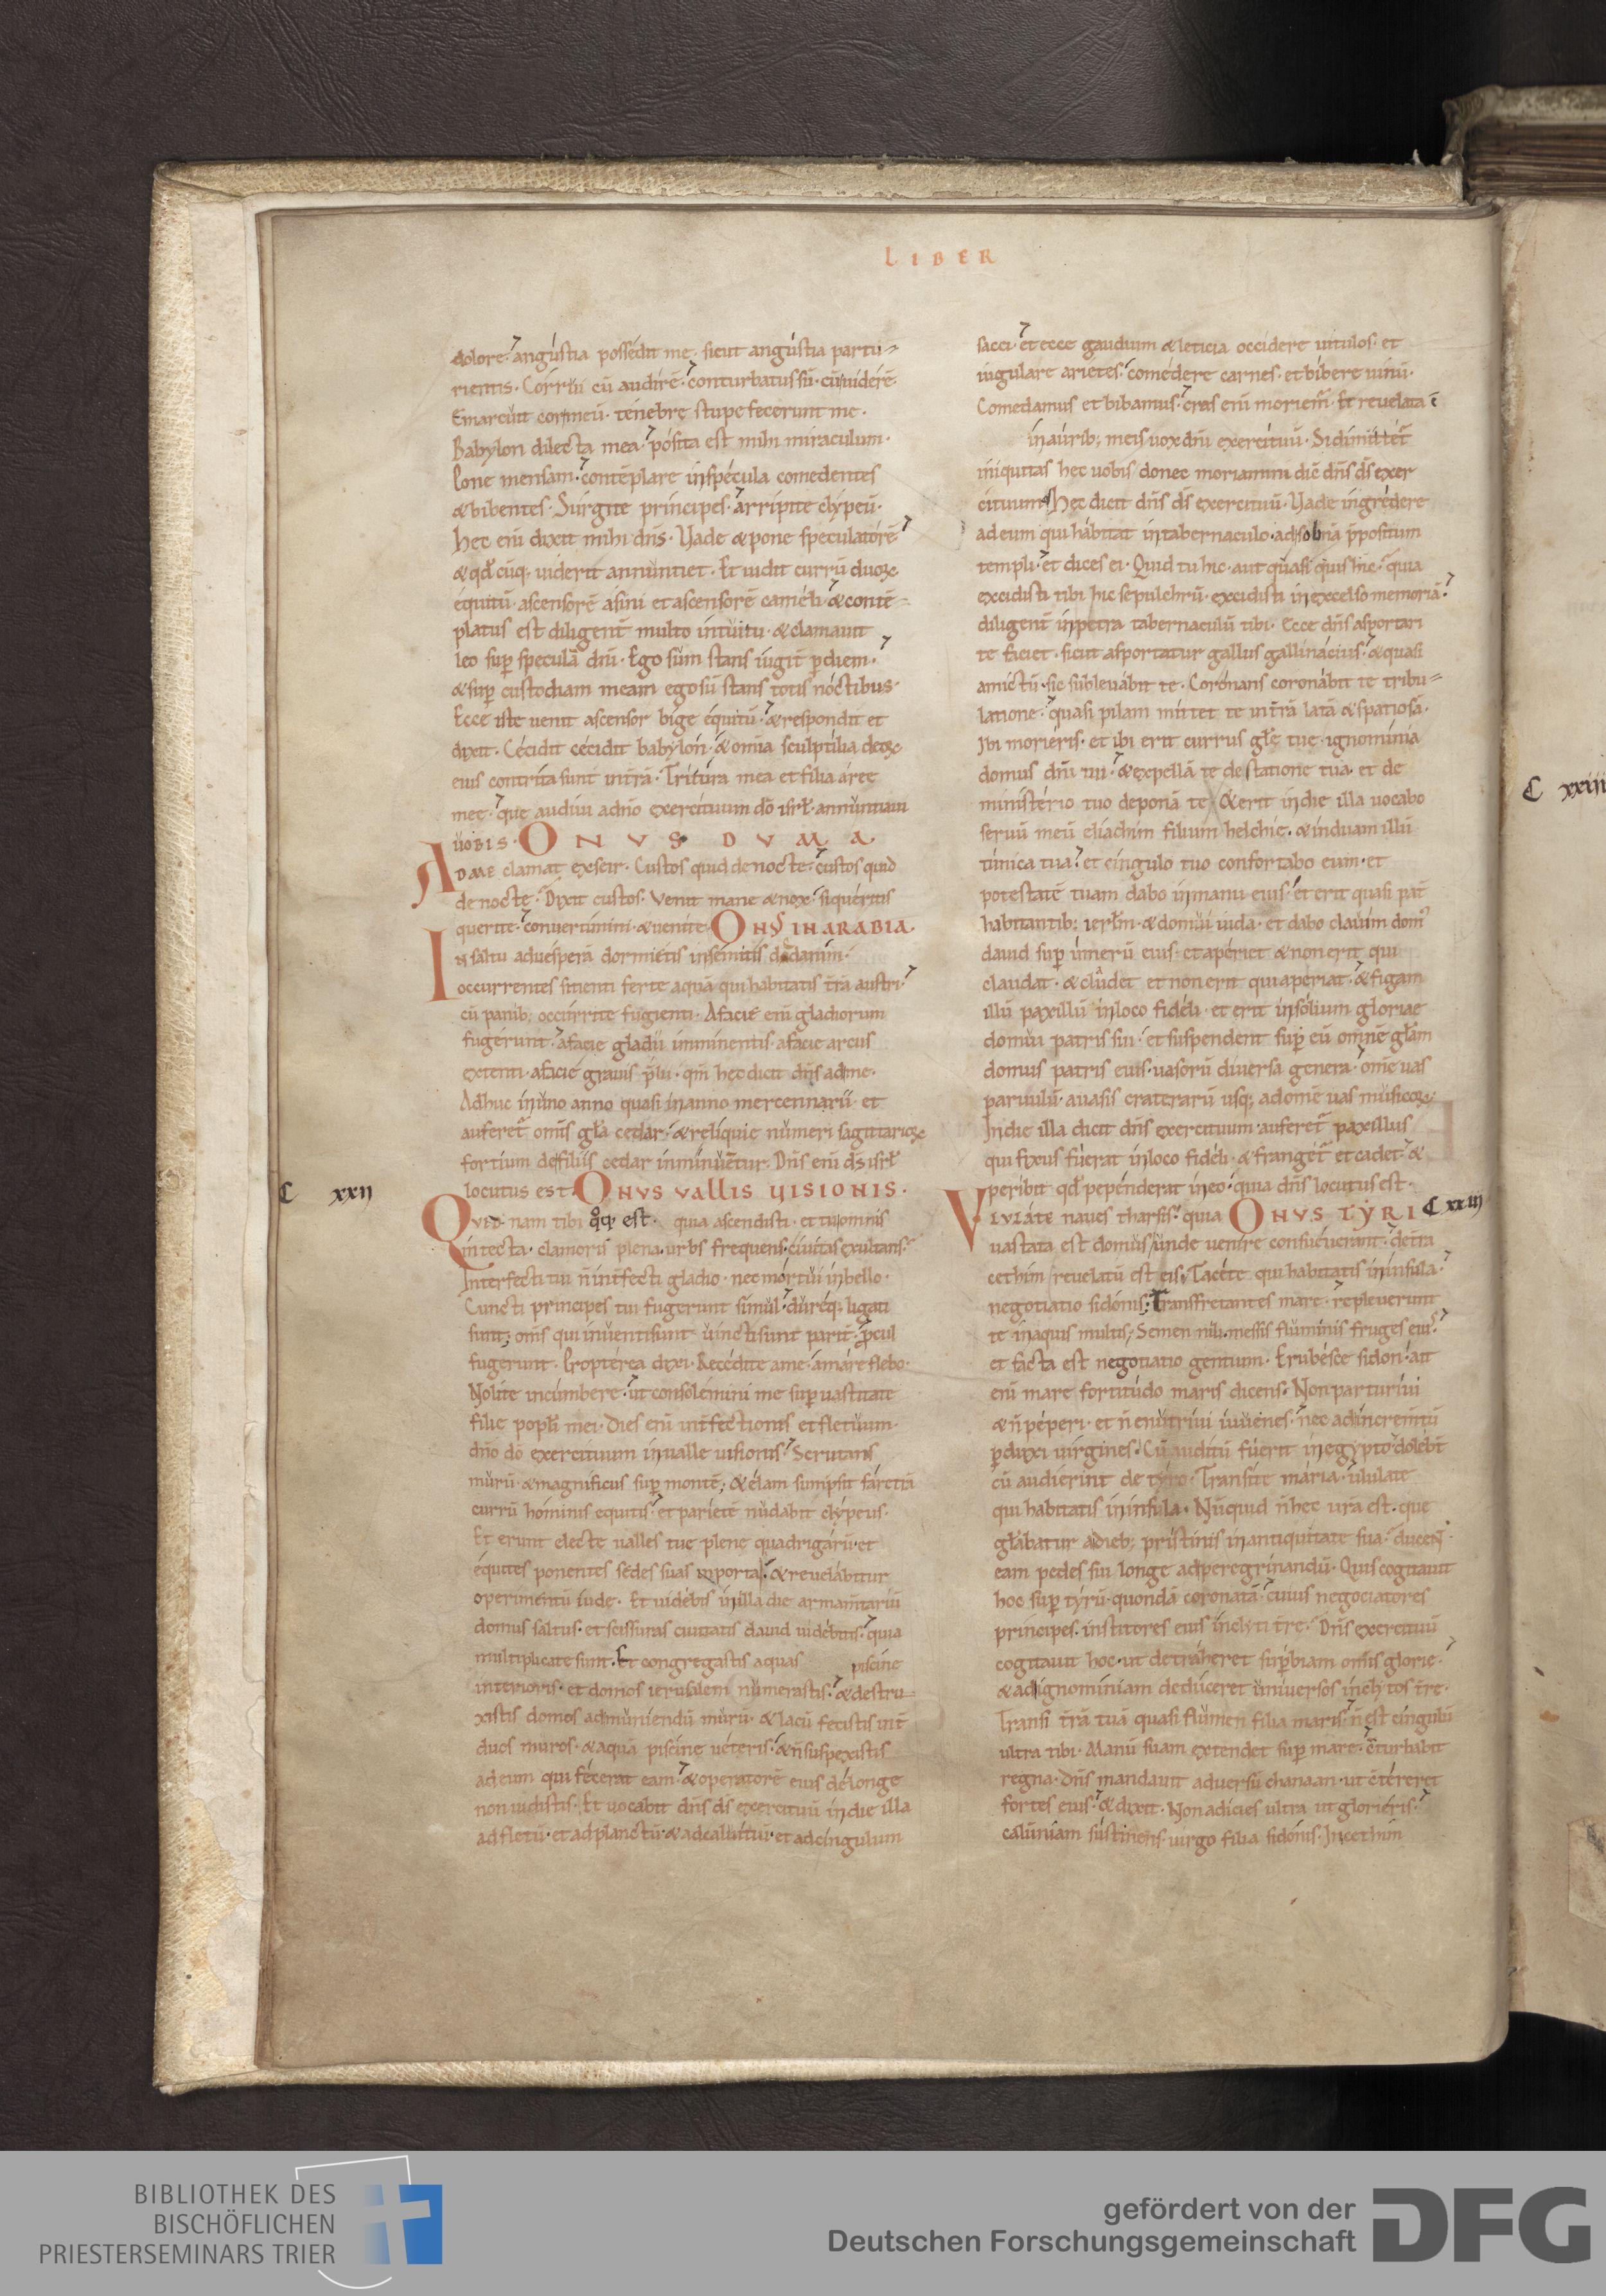 LIBER
dolore· angústia possédit me· sicut angústia partu-
rientis· Córrui cū audírē· conturbatus sū· cū uidérē·
Emarcuit cor meū· ténebrę stupefecerunt me·
Babylon dilecta mea· pósita est mihi miraculum·
Pone mensam· contēplare in spécula comedentes
& bibentes· Súrgite príncipes· arripite clýpeū·
Hęc eni dixit mihi dn̄s· Uade & pone speculatórē
& qd cūq; uiderit annúntiet· Et uidit currū duoꝝ
équitū· ascensorē asini et ascensorē caméli· & contē-
platus est diligent̄ multo intúitu· & clamauit
leo sup speculā dn̄i· Ego sum stans iúgit p diem·
& sup custodiam meam ego sū stans totis nóctibus·
Ecce iste uenit ascensor bigę équitū· & respondit et
dixit· Cécidit cécidit babylon· & omnia sculptília deoꝝ
eius contrita sunt in trā· Tritúra mea et filia áreę
meę· quę audiui a dn̄o exercituum dō isrl· annúntiaui
uobis· ONUS DUMA
AD ME clamat ex seir· Custos quid de nocte· custos quid
de nocte· Dixit custos· Venit mane & nox· si quéritis
querite· conuertímini· & uenite· ONUS IN ARABIA·
IN saltu ad uésperā dormiétis in sémitis dedanim·
occurrentes sitienti ferte aquā qui habitatis trā austri·
cū panib; occúrrite fugienti· A facie eni gladiorum
fugérunt· a facie gladii imminentis· a facie arcus
extenti· a facie grauis pḷii· qm̄ hęc dicit dn̄s ad me·
Adhuc in uno anno quasi in anno mercennarii· et
auferet omīs gła cedar· & relíquię númeri sagittarioꝝ
fortium de filiis cedar inminuētur· Dn̄s eni ds̄ isrł
locutus est· ONUS VALLIS UISIONIS·
C xxij
QUID nam tibi qq; est· quia ascendisti· et tu omnis
in tecta· clamoris plena· urbs frequens· ciuitas exultans·
Interfecti tui n̄ int̄fecti gladio· nec mórtui in bello·
Cuncti príncipes tui fugerunt símul· duręq; ligati
sunt; oms̄ qui inuenti sunt uincti sunt parit· pcul
fugerunt· Proptérea dixi· Recédite a me· amáre flebo·
Nolite incúmbere· ut consolémini me sup uastitate
filię popli mei· Dies eni int̄fectionis et fletuum·
dn̄o dō exercituum in ualle uisionis· Scrutans
murū· & magnificus sup montē; & ęlam sumpsit fáretrā
currū hóminis equitis· et paríetē nudábit clýpeus·
Et erunt electę ualles tuę plenę quadrigárū· et
équites ponentes sédes suas in porta· & reuelábitur
operimentū iudę· Et uidébis in illa die armam̄tariū
domus saltus· et scissuras ciuitatis dauid uidébitis· quia
multiplicatę sunt· Et congregastis aquas piscinę
interioris· et domos ierusalem numerastis· & destru-
xistis domos ad muniendū murū· & lacū fecistis int̄
duos muros· & aquā piscinę uéteris· & n̄ suspexistis
ad eum qui fécerat eam· & operatorē eius de longe
non uidistis· Et uocabit dn̄s ds̄ exercituū in die illa
ad fletū· et ad planctū· & ad caluítiū· et ad cíngulum
sacci· et ecce gaudium & lęticia occidere uitulos· et
iugulare arietes· comédere carnes· et bíbere uinū·
Comedamus et bibamus· cras eni moriem̄· Et reuelata ē
in aurib; meis uox dn̄i exercituū· Si dimittét
iniquitas hęc uobis donec moriamini dic̄ dn̄s ds̄ exer
cituum Hęc dicit dn̄s ds̄ exercituū· Uade ingrédere
ad eum qui hábitat in tabernaculo· ad sobnā p̄positum
templi· et dices ei· Quid tu hic· aut quasi quis hic· quia
excidisti tibi hic sepulchrū· excidisti in excelso memoriā·
diligent̄ in petra tabernaculū tibi· Ecce dn̄s asportari
te faciet· sicut asportatur gallus gallinácius· & quasi
amictū· sic subleuábit te· Corónans coronábit te tribu-
latione· quasi pilam mittet te in trā latā & spatiosā·
Ibi moriéris· et ibi erit currus głę tuę· ignominia
domus dn̄i tui· & expellā te de statione tua· et de
ministério tuo deponā te· & erit in die illa uocabo
seruū meū eliachim filium helchię· & induam illū
túnica tua· et cíngulo tuo confortabo eum· et
potestatē tuam dabo in manu eius· et erit quasi pat̄
habitantib; ierlm̄· & domui iuda· et dabo clauim dom'
dauid sup úmerū eius· et apériet & non erit qui
claudat· & cludet et non erit qui apériat· & figam
illū paxillū in loco fidéli· et erit in sólium gloriae
domui patris sui· et suspendent sup eū omnē głam
domus patris eius· uasorū diuersa genera· omē uas
paruulū· a uasis craterarū usq; ad omē uas músicoꝝ·
In die illa dicit dn̄s exercituum· auferet paxillus
qui fixus fúerat in loco fidéli· & franget et cadet &
peribit qd pepénderat in eo· quia dn̄s locutus est·
VLULATE naues tharsis· quia ONUS TYRI C xxiij
uastata est domus unde uenire consueuerant· de tra
cethim reuelatū est eis· Tacéte qui habitatis in insula·
negotiatio sidónis; Transfretantes mare· repleuerunt
te in aquis multis; Semen nili· messis flúminis fruges eius·
et facta est negotiatio gentium· Erubésce sidon· ait
eni mare fortitúdo maris dicens· Non parturiui
& n̄ péperi· et n̄ enutriui iúuenes· nec ad increm̄tū
pduxi uirgines· Cū auditū fúerit in egypto· dolébt̄
cū audierint de tyro· Transite mária· ululate
qui habitatis in insula· Nūquid n̄ hęc ur̄a est· quę
głabatur a dieb; prístinis in antiquitate sua· ducent̄
eam pedes sui longe ad peregrinandū· Quis cogitauit
hoc sup tyrū· quondā coronatā· cuius negociatores
príncipes· institores eius inclyti tr̄ę· Dn̄s exercituū
cogitauit hoc· ut detráheret supbiam omīs glorię·
& ad ignominiam dedúceret uniuersos inclytos tr̄ę·
Transi trā tuā quasi flumen filia maris· n̄ est cingulū
ultra tibi· Manū suam extendet sup mare· c̄turbabit
regna· Dn̄s mandauit aduersū chanaan· ut c̄téreret
fortes eius· & dixit· Non adícies ultra ut gloriéris·
calúniam sústinens· uirgo filia sidónis· In cethim
C xxiiij
BIBLIOTHEK DES
BISCHÖFLICHEN
PRIESTERSEMINARS TRIER
gefördert von der
Deutschen Forschungsgemeinschaft
DFG